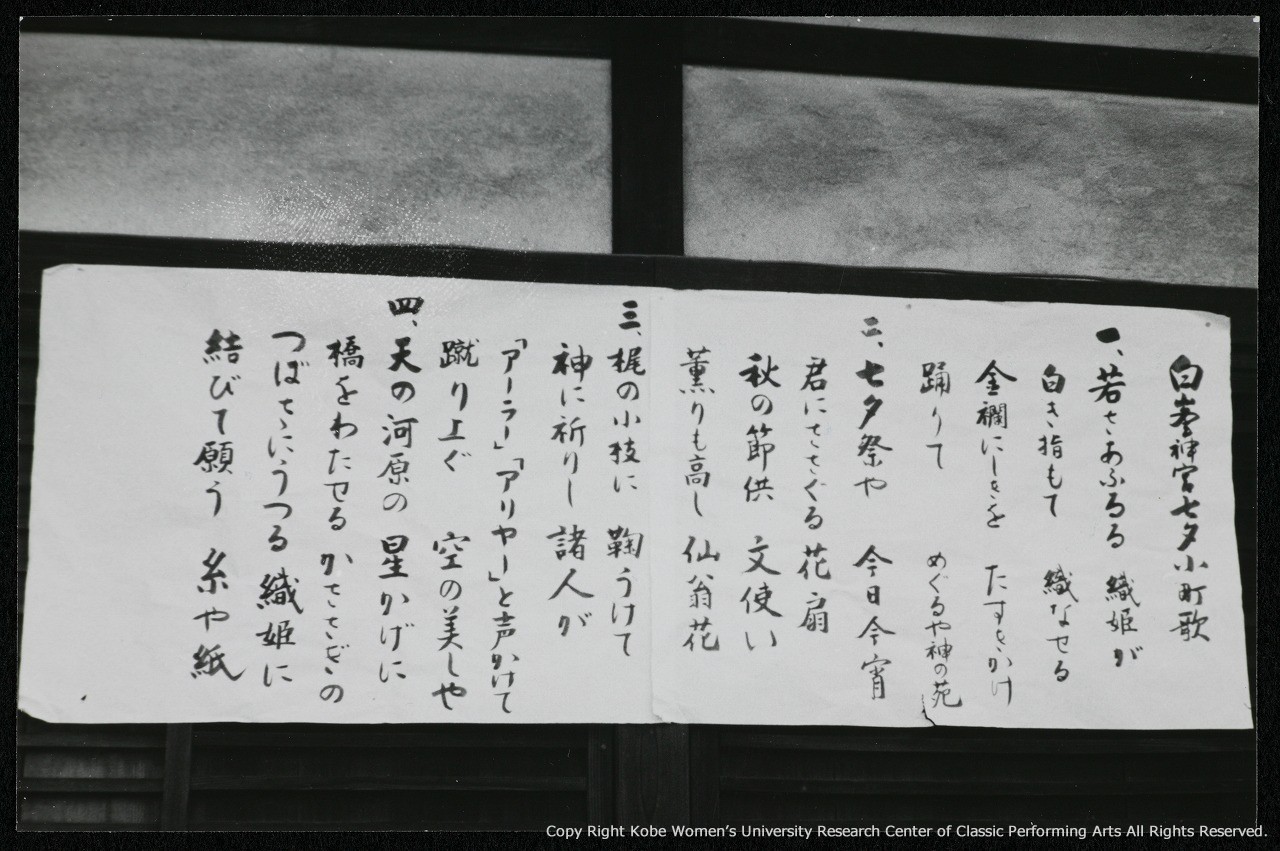 白峯神宮七夕小町歌
一、若さあふるる 織姫が
白き指もて 織なせる
金襴にしきを たすきかけ
踊りて めぐるや神の苑
二、七夕祭や 今日今宵
君にささぐる花扇
秋の節供 文使い
薫りも高し 仙翁花
三、梶の小枝に 鞠うけて
神に祈りし 諸人が
「アーラー」「アリヤー」と声かけて
蹴り上ぐ 空の美しや
四、天の河原の 星かげに
橋をわたせる かささぎの
つばさにうつる 織姫に
結びて願う 糸や紙
Copy Right Kobe Women's University Research Center of Classic Performing Arts All Rights Reserved.